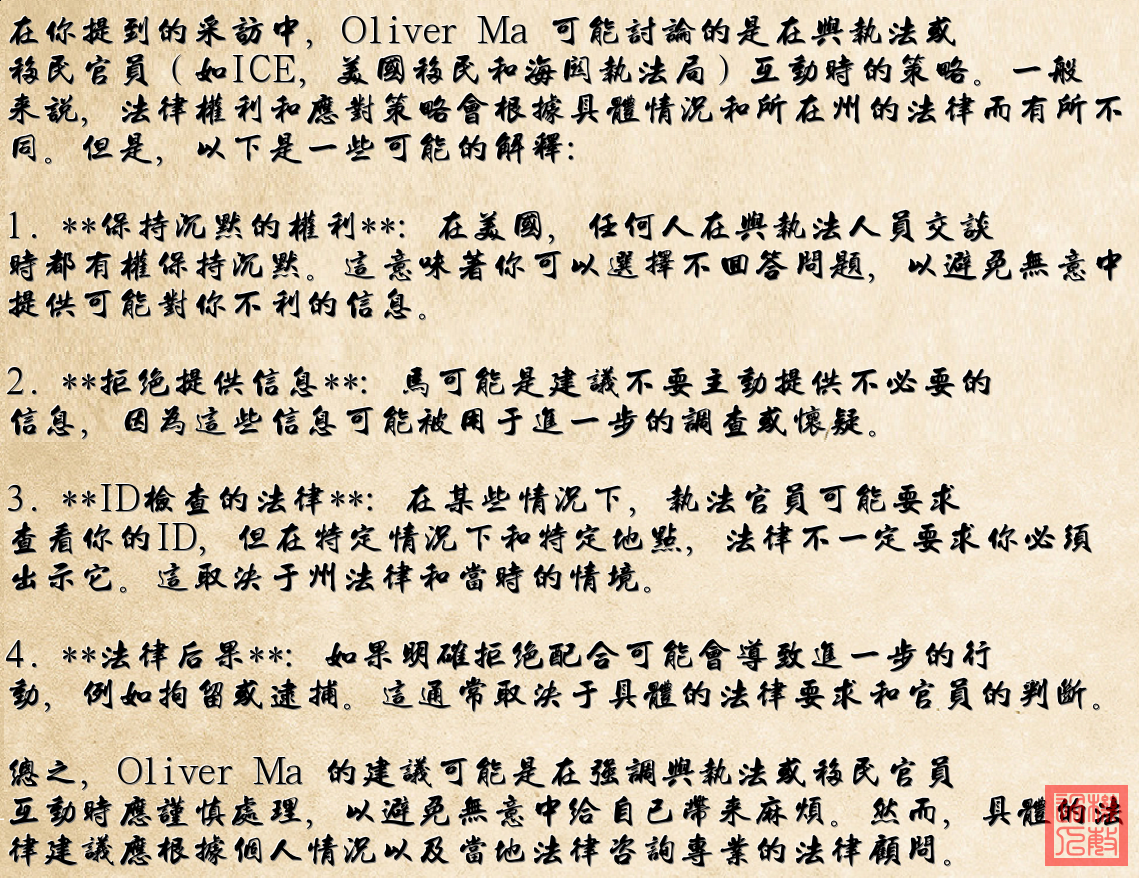 在你提到的采訪中，Oliver Ma 可能討論的是在與執法或
移民官員（如ICE，美國移民和海關執法局）互動時的策略。一般
来説，法律權利和應對策略會根據具體情況和所在州的法律而有所不
同。但是，以下是一些可能的解釋：
1. **保持沉默的權利**：在美國，任何人在與執法人員交談
時都有權保持沉默。這意味著你可以選擇不回答問題，以避免無意中
提供可能對你不利的信息。
2. **拒绝提供信息**：馬可能是建議不要主動提供不必要的
信息，因為這些信息可能被用于進一步的調查或懷疑。
3. **ID檢查的法律**：在某些情況下，執法官員可能要求
查看你的ID，但在特定情況下和特定地點，法律不一定要求你必須
出示它。這取決于州法律和當時的情境。
4. **法律后果**：如果明確拒绝配合可能會導致進一步的行
動，例如拘留或逮捕。這通常取決于具體的法律要求和官員的判斷。
總之，Oliver Ma 的建議可能是在强調與執法或移民官員
互動時應謹慎處理，以避免無意中给自己帶来麻煩。然而，具體的法
律建議應根據個人情況以及當地法律咨詢專業的法律顧問。